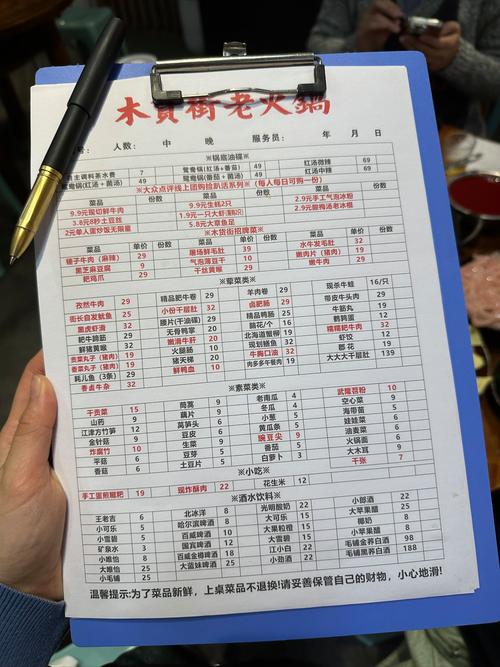 木貨街老火鍋
号： 人数： 中 晚 服务员： 年 月 日
※锅底油碟※
自主调料茶水费 7 鸳鸯锅(红汤+番茄) 49 红汤微辣 69
鸳鸯锅(红汤+菌汤) 49 鸳鸯锅(番茄+菌汤) 49 红汤中辣 69
※大众点评线上团购捡趴活系列※ (每人每日可购一份)
菜品 份数 菜品 份数 菜品 份数
9.9元现切鲜牛肉 9.9元生蚝2只 2.9元手工气泡冰粉
3.8元8秒土豆丝 1.9元一只大虾滑
2元单人蛋炒饭无限量 5.8元大章鱼足
※木货街招牌菜※
菜品 单价 份数 菜品 单价 份数 菜品 单价 份数
锤子牛肉（麻辣） 29 屠场鲜毛肚 39 水牛发毛肚 32
黑芝麻豆腐 9 气泡薄豆干 10 嫩肉片（猪肉） 19
耙鸡爪 29 干丝黄喉 29 嫩牛肉 29
※荤菜类※
菜品 单价 份数 菜品 单价 份数 羊肉卷 29 现杀牛蛙 16/只
孜然牛肉 29 精品肥牛卷 29 卤肥肠 29 带皮牛头肉 29
街长自发鱿鱼 25 小份千层肚 32 精品鸭肠 25 牛筋丸 19
黑虎虾滑 32 腰片(干油碟) 29 脑花/个 16 鹌鹑蛋 12
耙牛蹄筋 29 无骨鸭掌 20 北海道蟹柳 19 糯糯耙牛肉 32
鲜猪黄喉 32 嫩滑牛肝 20 现划鳝鱼 32 虾饺 12
贡菜丸子（猪肉） 19 火腿肠 10 牛胸口油 32 郡花 19
香菜丸子（猪肉） 19 猪天梯 20 肉多多午餐肉 19 大大大千层肚 139
耗儿鱼（3条） 29 鲜鸭血 10
香卤牛杂 32
※素菜类※
干贡菜 15 茼蒿 9 老南瓜 4 武隆苕粉 10
山药 9 藕片 9 冬瓜 4 空心菜 9
江津方竹笋 12 莴笋头 6 小葱 5 海带苗 5
金针菇 9 豆皮 6 黄瓜条 5 娃娃菜 9
炸腐竹 10 生菜 9 豌豆尖 9 油麦菜 9
平菇 6 豆芽 5 番茄 5 火锅面 6
香菇 6 土豆片 5 白萝卜 3 大木耳 9
千张 7
※小吃※
手工蛋煎糍粑 19 现炸酥肉 22 花生米 12
※酒水饮料※
王老吉 6 北冰洋 8 光明酸奶 22 小郎酒 22
小可乐 5 哈尔滨啤酒 8 大可乐 15 大苹果醋 25
小雪碧 5 百威啤酒 10 大果粒橙 15 椰奶 8
矿泉水 3 国宾啤酒 12 大雪碧 15 小苹果醋 8
小唯怡 8 百威金樽啤酒 18 江小白 22 毛铺金荞白酒 98
大唯怡 25 大蓝妹啤酒 25 小劲酒 22 毛铺黑荞白酒 188
小毛铺 25
温馨提示:为了菜品新鲜，上桌菜品不退换!请妥善保管自己的财物，小心地滑!